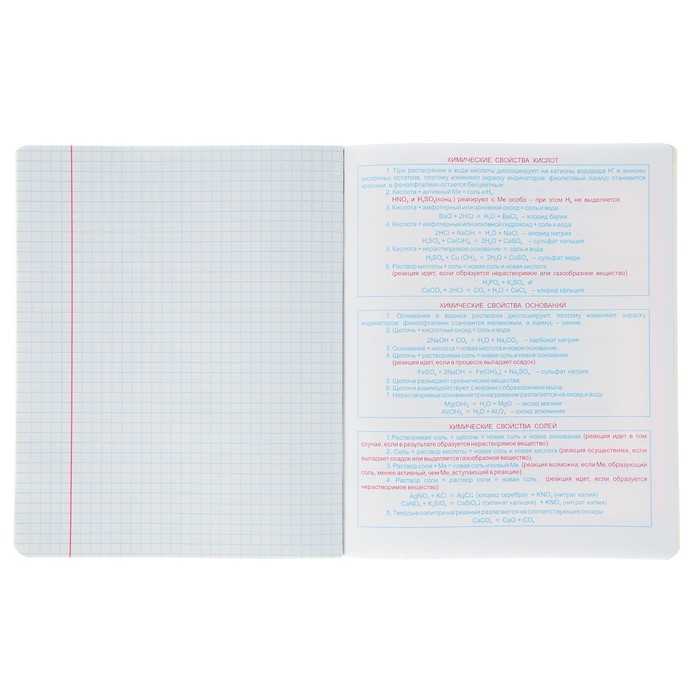 ХИМИЧЕСКИЕ СВОЙСТВА КИСЛОТ
1. При растворении в воде кислоты диссоциируют на катионы водорода H⁺ и анионы
кислотных остатков, поэтому изменяют окраску индикаторов: фиолетовый лакмус становится
красным, а фенолфталеин остается бесцветным.
2. Кислота + активный Me = соль и H₂
HNO₃ и H₂SO₄(конц.) реагируют с Me особо – при этом H₂ не выделяется
3. Кислота + амфотерный или основной оксид = соль и вода
BaO + 2HCl = H₂O + BaCl₂ – хлорид бария
4. Кислота + амфотерный или основной гидроксид = соль и вода
2HCl + NaOH = H₂O + NaCl – хлорид натрия
H₂SO₄ + Ca(OH)₂ = 2H₂O + CaSO₄ – сульфат кальция
5. Кислота + нерастворимое основание = соль и вода
H₂SO₄ + Cu(OH)₂ = 2H₂O + CuSO₄ – сульфат меди
6. Раствор кислоты + соль = новая соль и новая кислота
(реакция идет, если образуется нерастворимое или газообразное вещество)
H₃PO₄ + K₂SO₄ ≠
CaCO₃ + 2HCl = CO₂ + H₂O + CaCl₂ – хлорид кальция
ХИМИЧЕСКИЕ СВОЙСТВА ОСНОВАНИЙ
1. Основания в водных растворах диссоциируют, поэтому изменяют окраску
индикаторов, фенолфталеин становится малиновым, а лакмус – синим.
2. Щелочь + кислотный оксид = соль и вода
2NaOH + CO₂ = H₂O + Na₂CO₃ – карбонат натрия
3. Основание + кислота = новая кислота и новое основание
4. Щелочь + растворимая соль = новая соль и новое основание
(реакция идет, если в процессе выпадает осадок)
FeSO₄ + 2NaOH = Fe(OH)₂↓ + Na₂SO₄ – сульфат натрия
5. Щелочи разъедают органические вещества.
6. Щелочи взаимодействуют с жирами с образованием мыла.
7. Нерастворимые основания при нагревании разлагаются на оксид и воду
Mg(OH)₂ = H₂O + MgO – оксид магния
Al(OH)₃ = H₂O + Al₂O₃ – оксид алюминия
ХИМИЧЕСКИЕ СВОЙСТВА СОЛЕЙ
1. Растворимая соль + щелочь = новая соль и новое основание (реакция идет в том
случае, если в результате образуется нерастворимое вещество).
2. Соль + раствор кислоты = новая соль и новая кислота (реакция осуществима, если
выпадает осадок или выделяется газообразное вещество)
3. Раствор соли + Me = новая соль и новый Me (реакция возможна, если Me, образующий
соль, менее активный, чем Me, вступающий в реакцию).
4. Раствор соли + раствор соли = новая соль (реакция идет, если образуется
нерастворимое вещество)
AgNO₃ + KCl = AgCl↓ (хлорид серебра) + KNO₃ (нитрат калия)
CaNO₃ + K₂SiO₃ = CaSiO₃↓ (силикат кальция) + KNO₃ (нитрат калия)
5. Твердые соли при нагревании разлагаются на соответствующие оксиды
CaCO₃ = CaO + CO₂